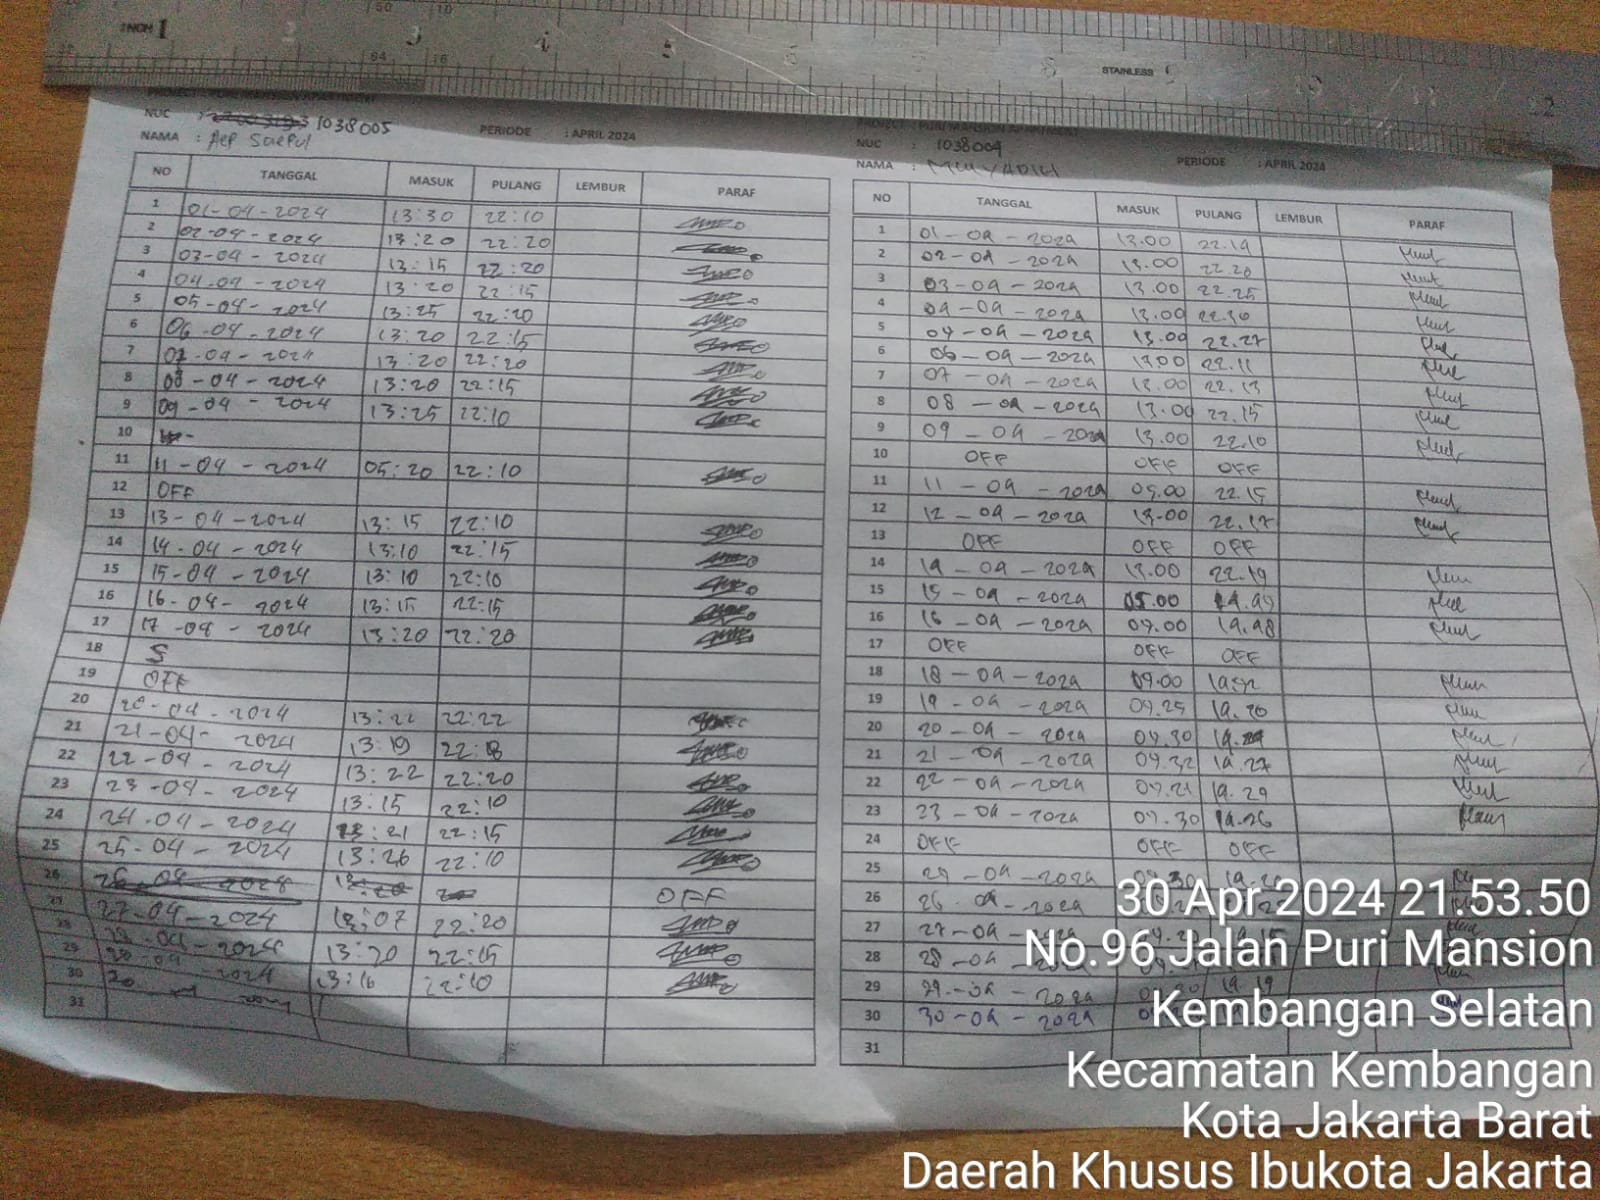 INCH 1 2 3 4 5 6 7 8 STAINLESS 9 10 11 12
NUC : 1038005
NAMA : Aep Saepul PERIODE : APRIL 2024
NO TANGGAL MASUK PULANG LEMBUR PARAF
1 01-04-2024 13:30 22:10
2 02-04-2024 13:20 22:20
3 03-04-2024 13:15 22:20
4 04-04-2024 13:20 22:15
5 05-04-2024 13:25 22:20
6 06-04-2024 13:20 22:15
7 07-04-2024 13:20 22:20
8 08-04-2024 13:20 22:15
9 09-04-2024 13:25 22:10
10
11 11-04-2024 05:20 22:10
12 OFF
13 13-04-2024 13:15 22:10
14 14-04-2024 13:10 22:15
15 15-04-2024 13:10 22:10
16 16-04-2024 13:15 22:15
17 17-04-2024 13:20 22:20
18 S
19 OFF
20 20-04-2024 13:22 22:22
21 21-04-2024 13:19 22:18
22 22-04-2024 13:22 22:20
23 23-04-2024 13:15 22:10
24 24-04-2024 13:21 22:15
25 25-04-2024 13:26 22:10
26 26-04-2024 OFF
27 27-04-2024 13:07 22:20
28 13:20 22:15
29 13:16 22:10
30
31
PROJECT : PURI MANSION APARTMENT
NUC : 1038004
NAMA : MULYADI PERIODE : APRIL 2024
NO TANGGAL MASUK PULANG LEMBUR PARAF
1 01-04-2024 13.00 22.19
2 02-04-2024 13.00 22.20
3 03-04-2024 13.00 22.25
4 04-04-2024 13.00 22.30
5 04-04-2024 13.00 22.27
6 06-04-2024 13.00 22.11
7 07-04-2024 13.00 22.13
8 08-04-2024 13.00 22.15
9 09-04-2024 13.00 22.10
10 OFF OFF OFF
11 11-04-2024 05.00 22.15
12 12-04-2024 13.00 22.17
13 OFF OFF OFF
14 14-04-2024 13.00 22.19
15 15-04-2024 05.00
16 16-04-2024 04.00 14.48
17 OFF OFF OFF
18 18-04-2024 04.00
19 19-04-2024 04.25 14.20
20 20-04-2024 04.30
21 21-04-2024 04.32 14.27
22 22-04-2024 04.21 14.29
23 23-04-2024 04.30 14.26
24 OFF OFF OFF
25 25-04-2024 04.30
26 26-04-2024
27 27-04-2024
28 28-04-2024
29 29-04-2024 14.19
30 30-04-2024
31
30 Apr 2024 21.53.50
No.96 Jalan Puri Mansion
Kembangan Selatan
Kecamatan Kembangan
Kota Jakarta Barat
Daerah Khusus Ibukota Jakarta